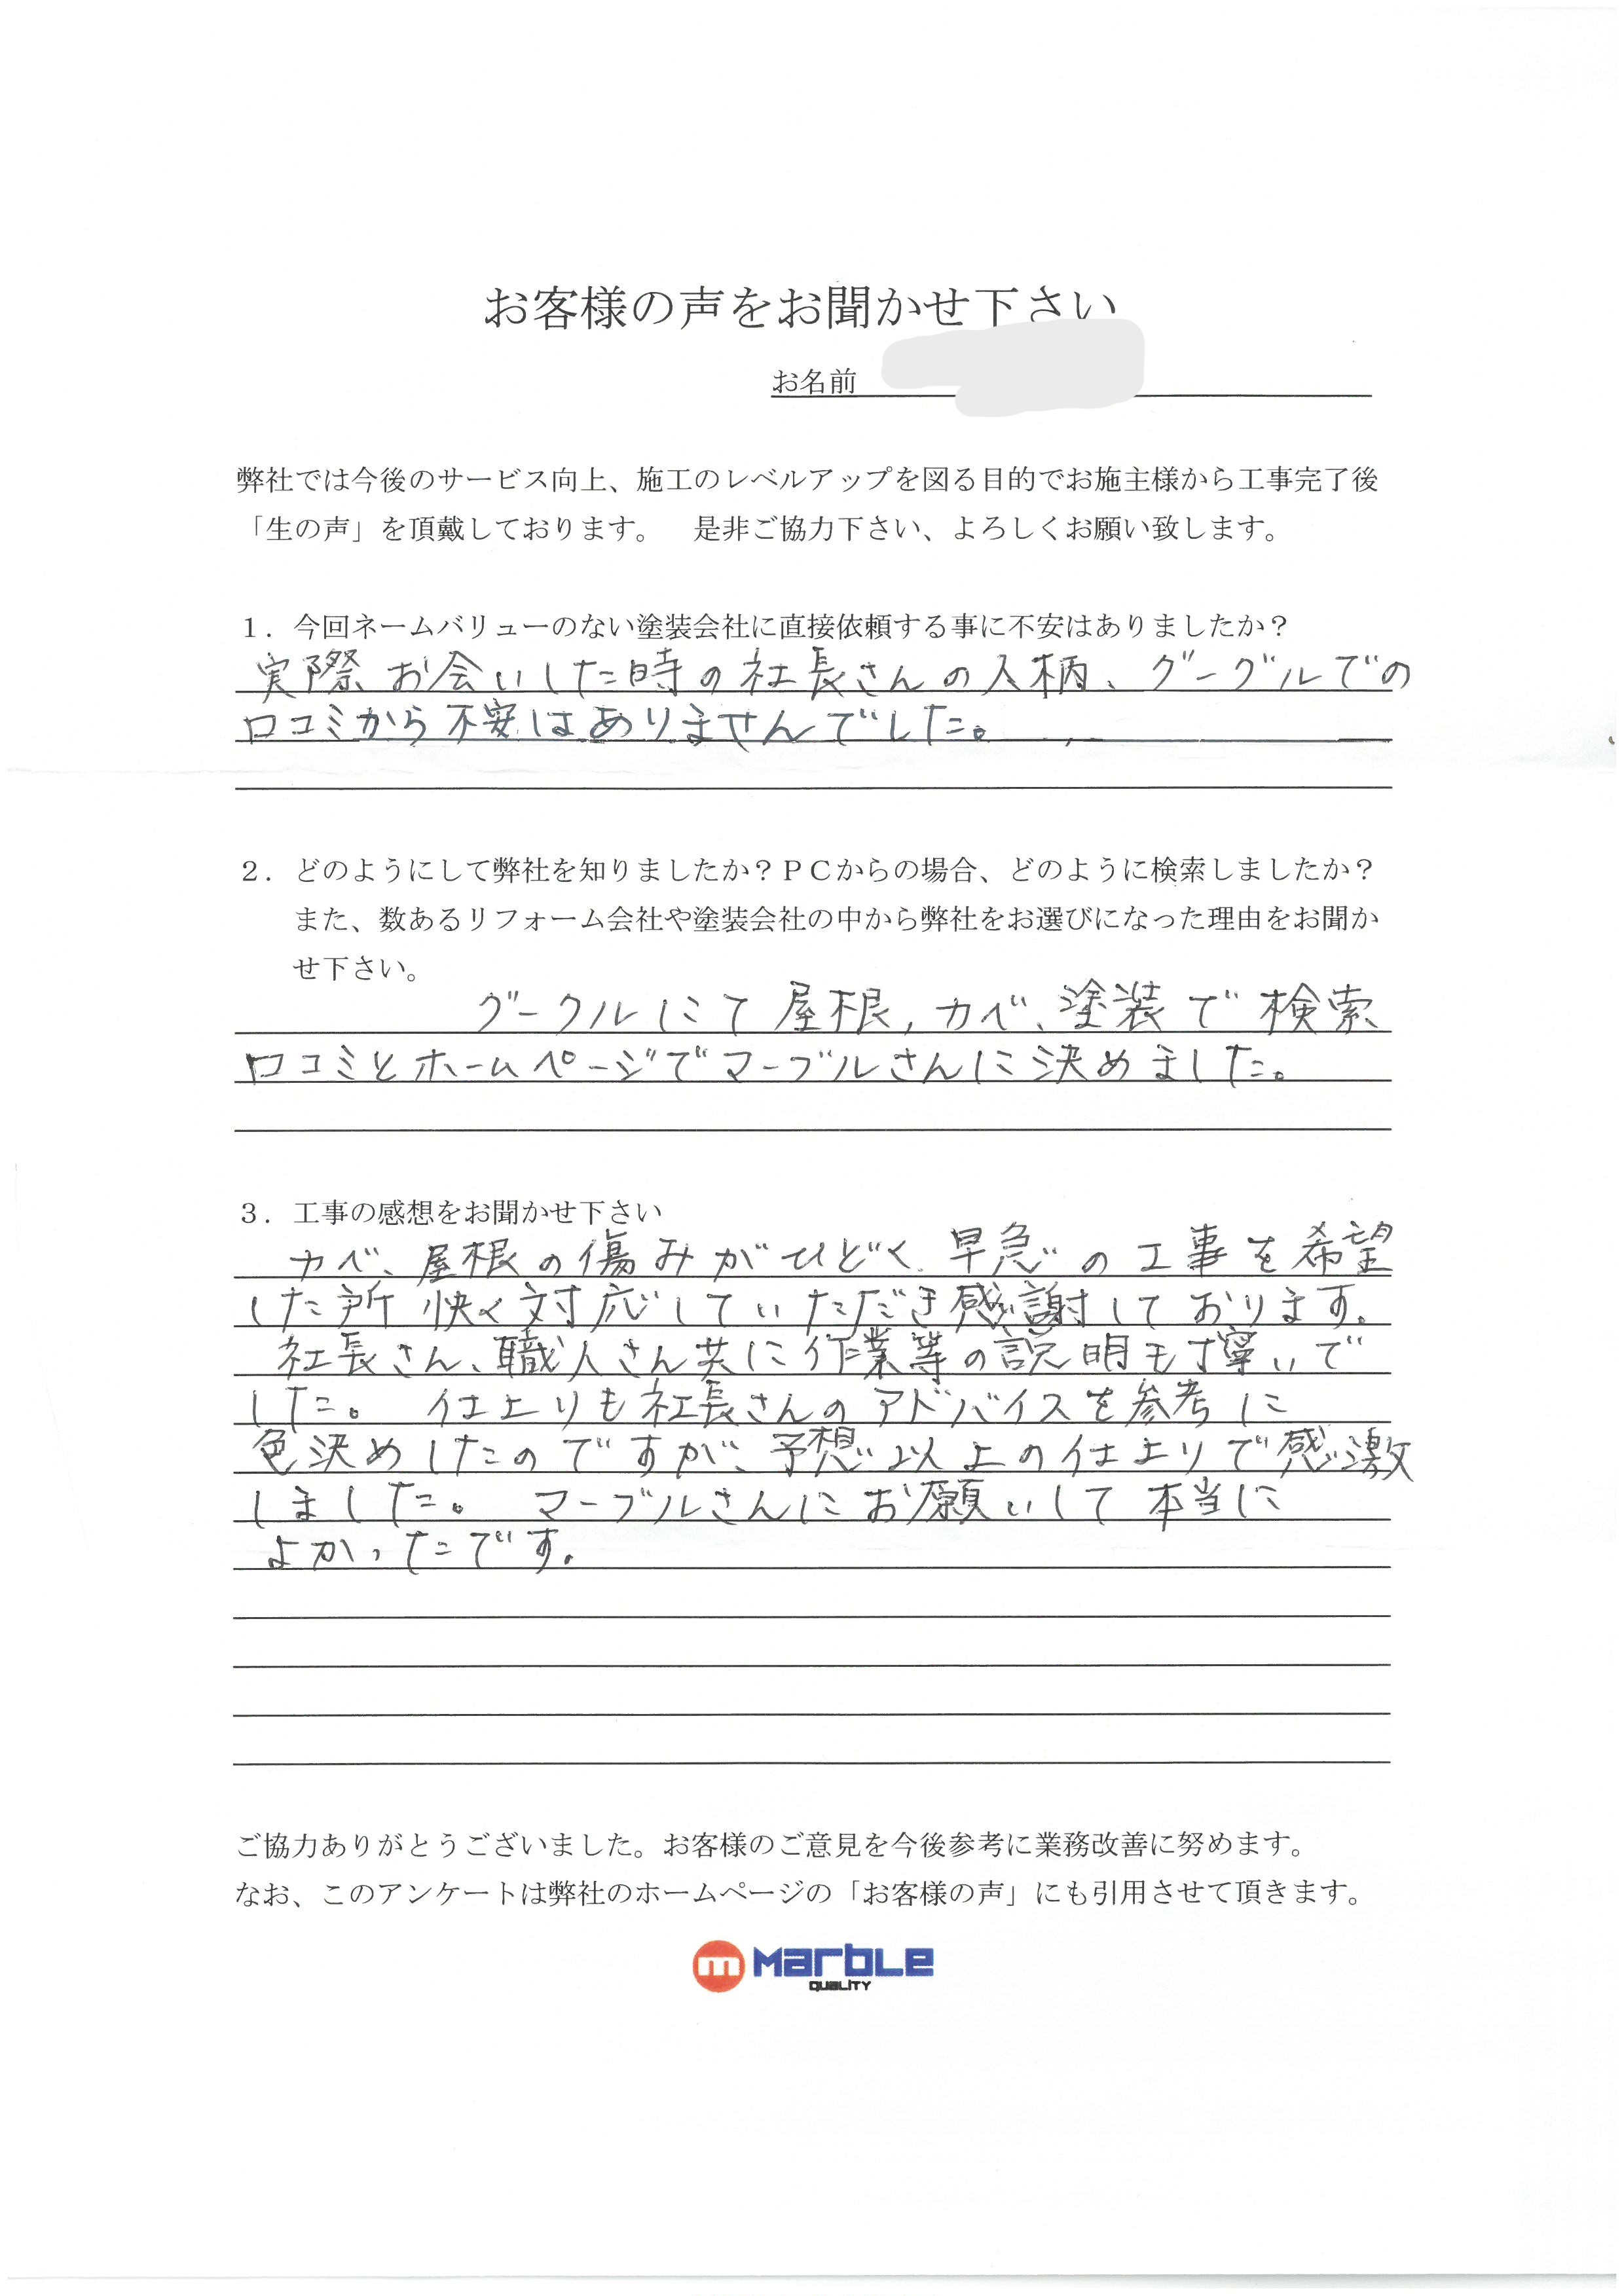 お客様の声をお聞かせ下さい
お名前
弊社では今後のサービス向上、施工のレベルアップを図る目的でお施主様から工事完了後
「生の声」を頂戴しております。　是非ご協力下さい、よろしくお願い致します。
１．今回ネームバリューのない塗装会社に直接依頼する事に不安はありましたか？
実際お会いした時の社長さんの人柄、グーグルでの
口コミから不安はありませんでした。
２．どのようにして弊社を知りましたか？ＰＣからの場合、どのように検索しましたか？
また、数あるリフォーム会社や塗装会社の中から弊社をお選びになった理由をお聞か
せ下さい。
グークルにて屋根，カベ、塗装で検索
口コミとホームページでマーブルさんに決めました。
３．工事の感想をお聞かせ下さい
カベ、屋根の傷みがひどく、早急の工事を希望
した所 快く対応していただき感謝しております。
社長さん、職人さん共に作業等の説明も丁寧いで
した。 仕上りも社長さんのアドバイスを参考に
色決めしたのですが、予想以上の仕上りで感激
しました。 マーブルさんにお願いして本当に
よかったです。
ご協力ありがとうございました。お客様のご意見を今後参考に業務改善に努めます。
なお、このアンケートは弊社のホームページの「お客様の声」にも引用させて頂きます。
m Marble
QUALITY